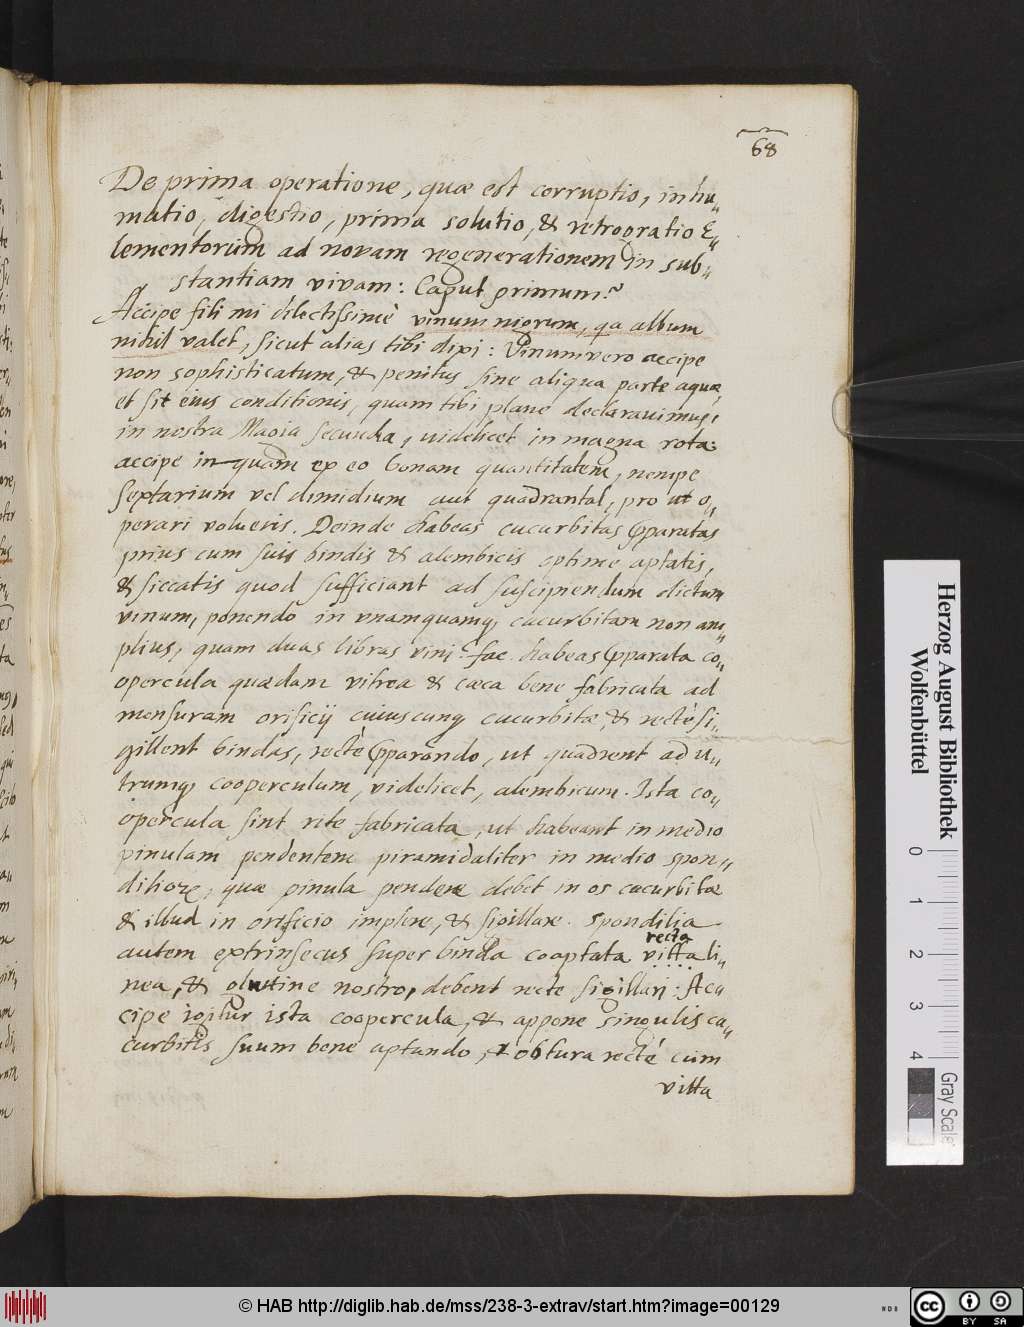 68
De prima operatione, quæ est corruptio, inhu„
matio, digestio, prima solutio, & retrogratio E„
lementorum ad novam regenerationem in sub„
stantiam vivam: Caput primum.
Accipe fili mi dilectissimè vinum nigrum, qa album
nihil valet, sicut alias tibi dixi: Vinum vero accipe
non sophisticatum, & penitus sine aliqua parte aquæ,
et sit eius conditionis, quam tibi plane declaravimus,
in nostra Magia secunda, videlicet in magna rota:
accipe in quam ex eo bonam quantitatem, nempe
sextarium vel dimidium aut quadrantal, pro ut o„
perari volueris. Deinde habeas cucurbitas pparatas
prius cum suis bindis & alembicis optime aptatis,
& siccatis quod sufficiant ad suscipiendum dictum
vinum, ponendo in vnamquamq, cucurbitam non am„
plius, quam duas libras vini. fac habeas pparata co„
opercula quædam vitrea & cæca bene fabricata ad
mensuram orificij cuiuscunq cucurbitæ, & rectè si„
gillent bindas, rectè pparando, ut quadrent ad u„
trumq, cooperculum, videlicet, alembicum. Ista co„
opercula sint rite fabricata, ut habeant in medio
pinulam pendentem piramidaliter in medio spon„
dilioꝝ, quæ pinula pendere debet in os cucurbitæ
& illud in orificio implere, & sigillare. Spondilia
recta
autem extrinsecus super binda coaptata vitta li„
nea, & glutine nostro, debent recte sigillari: Ac„
cipe igitur ista coopercula, & appone singulis cu„
curbitis suum bene aptando, & obtura rectè cum
vitta
Herzog August Bibliothek
Wolfenbüttel
0 1 2 3 4
Gray Scale
© HAB http://diglib.hab.de/mss/238-3-extrav/start.htm?image=00129
cc BY SA